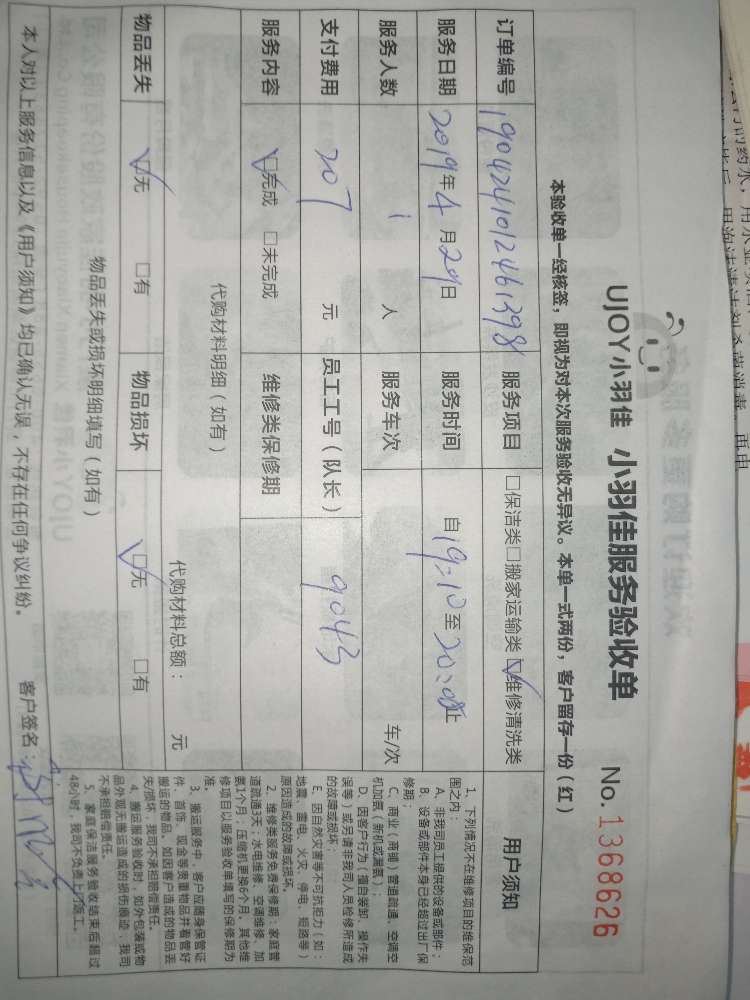 UJOY小羽佳 小羽佳服务验收单 No. 1368626
本验收单一经核签，即视为对本次服务验收无异议。本单一式两份，客户留存一份（红）
订单编号 190424101246139 服务项目 □保洁类□搬家运输类☑维修清洗类
服务日期 2019年4月29日 服务时间 自19:10至20:00止
服务人数 1 人 服务车次 车/次
支付费用 207 元 员工工号（队长） 9043
服务内容 ☑完成 □未完成 维修类保修期
代购材料明细（如有） 代购材料总额： 元
物品丢失 ☑无 □有 物品损坏 ☑无 □有
物品丢失或损坏明细填写（如有）
本人对以上服务信息以及《用户须知》均已确认无误，不存在任何争议纠纷。 客户签名：
用户须知
1、下列情况不在维修项目的维保范
围之内：
A、非我司员工提供的设备或部件；
B、设备或部件本身已经超过出厂保
修期；
C、商业（商铺）管道疏通、空调空
机加氨（新机或漏氨）；
D、因客户行为（擅自装卸、操作失
误等）或另请非我司人员检修所造成
的故障或损坏；
E、因自然灾害等不可抗拒力（如：
地震、雷电、火灾、停电、短路等）
原因造成的故障或损坏。
2、维修类服务免费保修期：家庭管
道疏通3天；水电维修、空调维修、加
氨1个月；压缩机更换6个月。其他维
修项目以服务验收单填写的保修期为
准。
3、搬运服务中，客户应随身保管证
件、首饰、现金等贵重物品并看管好
搬运的物品。如因客户造成的物品丢
失/损坏，我司不承担赔偿责任。
4、搬运服务验收时，如外包装或物
品外观无搬运造成的损伤痕迹，我司
不承担赔偿责任。
5、家庭保洁服务验收结束后超过
48小时，我司不负责上门返工。